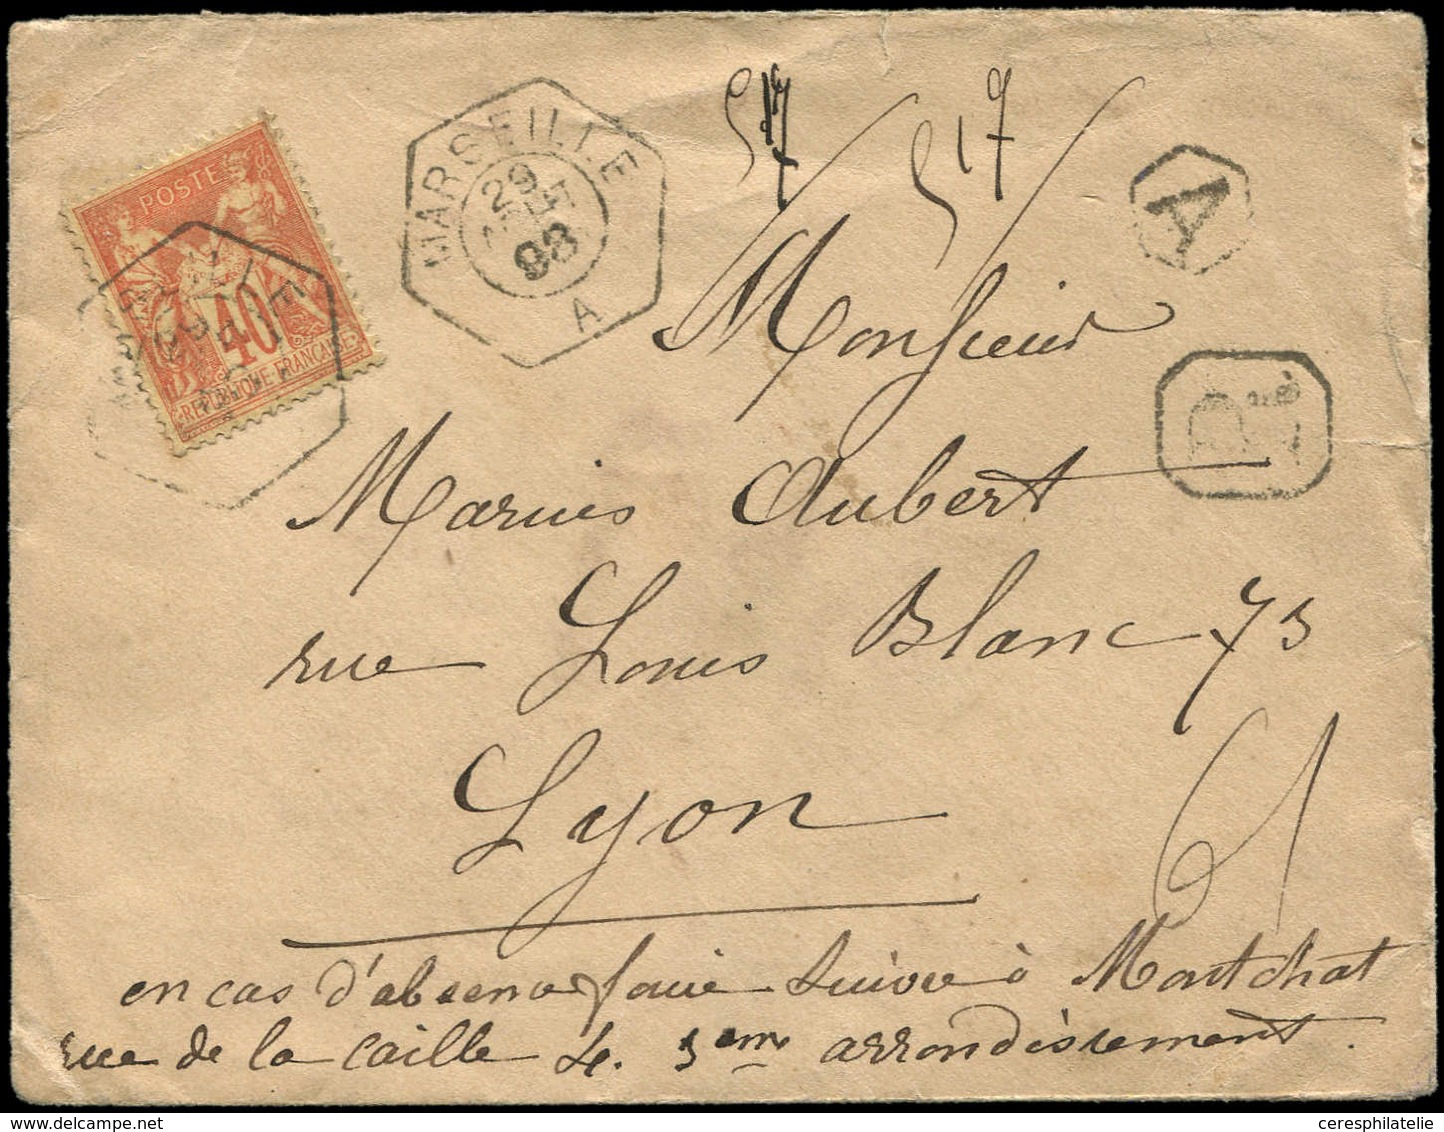 POSTES
40
REPUBLIQUE FRANCAISE
MARSEILLE
29
98
A
517
517
A
R
Monsieur
Marius Aubert
rue Louis Blanc 73
Lyon
en cas d'absence faire suivre à Montchat
rue de la caille 4. 3eme arrondissement.
ceresphilatelie
delcampe.net